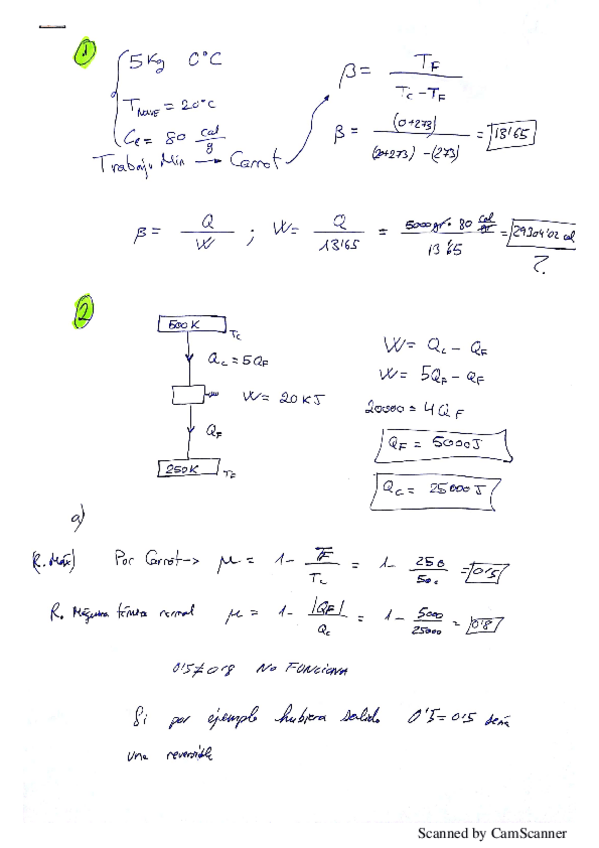 1
5 Kg 0°C
T NAVE = 20°C
Ce = 80 cal/g
Trabajo Min → Carnot
β = T_F / (T_C - T_F)
β = (0+273) / ((20+273) - (273)) = 13'65
β = Q / W ; W = Q / 13'65 = 5000gr · 80 cal/gr / 13'65 = 29304'02 cal
?
2
500K T_C
Q_C = 5Q_F
W = 20 KJ
Q_F
250K T_F
W = Q_C - Q_F
W = 5Q_F - Q_F
20000 = 4Q_F
Q_F = 5000J
Q_C = 25000J
a)
(R. Máx) Por Carnot → μ = 1 - T_F / T_C = 1 - 250 / 500 = 0'5
R. Máquina térmica normal μ = 1 - |Q_F| / Q_C = 1 - 5000 / 25000 = 0'8
0'5 ≠ 0'8 NO FUNCIONA
Si por ejemplo hubiera salido 0'5 = 0'5 sería
una reversible
Scanned by CamScanner